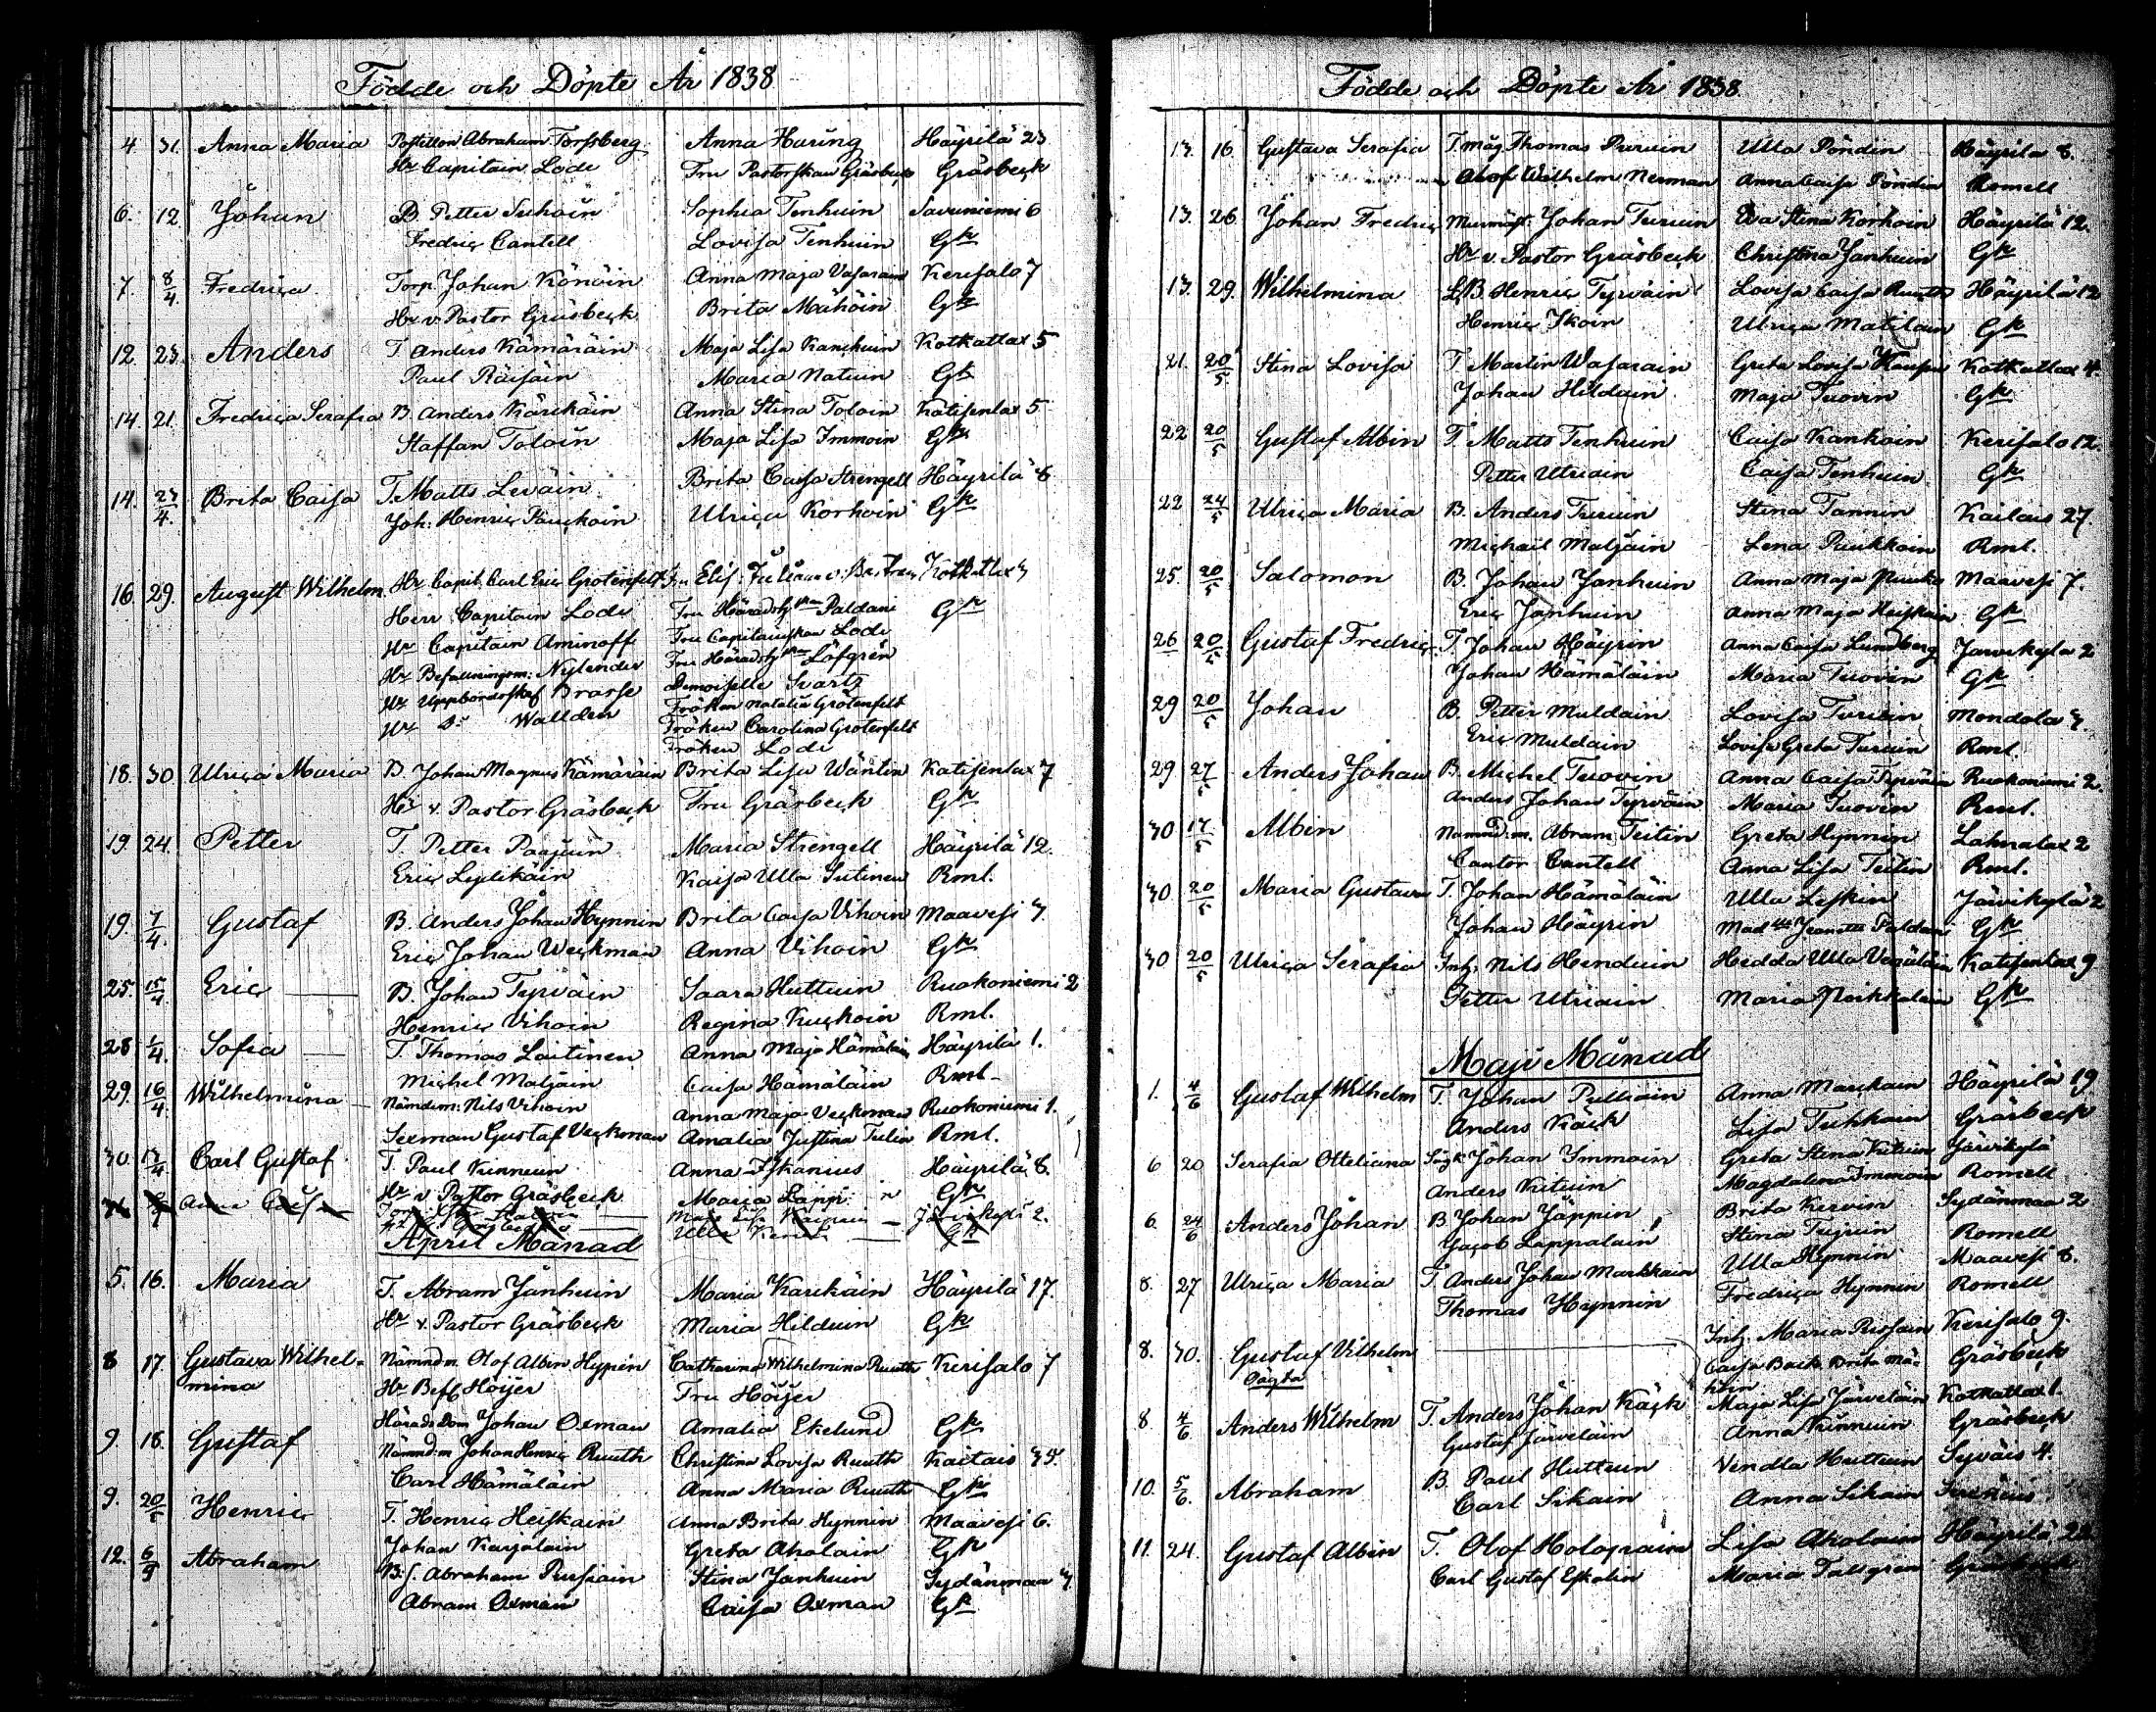 Födde och Döpte År 1838
4. 31. Anna Maria Postillon Abraham Forssberg Anna Haring Häyrilä 23
Hr Capitain Lode Fru Pastorskan Gräsbeck Gräsbeck
6. 12 Johan B. Petter Suhoin Sophia Tenhuin Savuniemi 6
Fredric Cantell Lovisa Tenhuin Gk
7. 8/4 Fredrica Torp. Johan Könöin Anna Maja Vasarain Kerisalo 7
Hr v. Pastor Gräsbeck Brita Mähöin Gk
12 23. Anders T Anders Kämäräin Maja Lisa Kanckuin Kotkatlax 5
Paul Räisäin Maria Natuin Gk
14. 21. Fredrica Serafia B. Anders Kärckäin Anna Stina Toloin Katisenlax 5
Staffan Toloin Maja Lisa Immoin Gk
14. 23/4. Brita Caisa T. Matts Leväin Brita Caisa Strengell Häyrilä 8
Joh: Henric Pauckoin Ulrica Korhoin Gk
16. 29. August Wilhelm Hr Capit. Carl Eric Grotenfelt Fru Elis. Kotkatlax 3
Herr Capitain Lode Fru Häradsh. Paldani Gk
Hr Capitain Aminoff Fru Capitainskan Lode
Hr Befallningsm: Nylander Fru Häradsh Löfgrén
Hr Uppbördsskrf Brasse Demoiselle Svartz
Hr Do Wallden Fröken Natalia Grotenfelt
Fröken Carolina Grotenfelt
Fröken Lode
18. 30 Ulrica Maria B. Johan Magnus Kämäräin Brita Lisa Wäntin Katisenlax 7
Hr v. Pastor Gräsbeck Fru Gräsbeck Gk
19. 24. Petter T. Petter Paajuin Maria Strengell Häyrilä 12.
Eric Lylikäin Kaisa Ulla Sutinen Rml.
19. 1/4. Gustaf B. Anders Johan Hynnin Brita Caisa Vihoin Maavesi 3.
Eric Johan Weckman Anna Vihoin Gk
25. 15/4 Eric B. Johan Tyrväin Saara Huttuin Ruokoniemi 2
Henric Vihoin Regina Kuckoin Rml.
28 1/4. Sofia T. Thomas Laitinen Anna Maja Hämäläin Häyrilä 1.
Michel Maljain Caisa Hämäläin Rml.
29. 16/4. Wilhelmina Nämdem: Nils Vihoin Anna Maja Veckman Ruokoniemi 1.
Sexman Gustaf Veckman Amalia Justina Tulin Rml.
30. 13/4 Carl Gustaf T. Paul Kinnuin Anna Iskanius Häyrilä 8.
Hr v Pastor Gräsbeck Maria Lappi Gk
Anna Caisa Maja Lisa Järvikylä 2.
Ulla Gk
April Månad
5. 16. Maria T. Abram Janhuin Maria Karckäin Häyrilä 17.
Hr v. Pastor Gräsbeck Maria Hilduin Gk
8 17. Gustava Wilhel- Nämndm. Olof Albin Hypén Catharina Wilhelmina Ruuth Kerisalo 7
mina Hr Befl Höijer Fru Höijer
Härads Dom Johan Oxman Amalia Ekelund Gk
9. 18. Gustaf Nämndm Johan Henric Ruuth Christina Lovisa Ruuth Kaitais 35.
Carl Hämäläin Anna Maria Ruuth Gk
9. 20/5 Henric T. Henric Heiskain Anna Brita Hynnin Maavesi 6.
Johan Karjalain Greta Aholain Gk
12. 6/9 Abraham B.S. Abraham Pursiain Stina Janhuin Sydänmaa 3.
Abram Oxman Caisa Oxman Gk
Födde och Döpte År 1838.
13. 16. Gustava Serafia T. måg Thomas Pursuin Ulla Pöndin Häyrilä 8.
Olof Wilhelm Nerman Anna Caisa Pöndin Romell
13. 26 Johan Fredric Murmäst: Johan Turuin Eva Stina Korhoin Häyrilä 12.
Hr v. Pastor Gräsbeck Christina Janhuin Gk
13. 29. Wilhelmina B. Henric Tyrväin Lovisa Caisa Ruuth Häyrilä 12
Henric Ikoin Ulrica Matilain Gk
21. 20/5 Stina Lovisa T. Martin Wasarain Greta Lovisa Kotkatlax 4.
Johan Hilduin Maja Tuovin Gk
22 20/5 Gustaf Albin T. Matts Tenhuin Caisa Kankain Kerisalo 12.
Petter Utriain Caisa Tenhuin Gk
22 24/5 Ulrica Maria B. Anders Turuin Stina Tannin Kaitais 27.
Michail Maljain Lena Puukkoin Rml.
25. 20/5 Salomon B. Johan Janhuin Anna Maja Maavesi 7.
Eric Janhuin Anna Maja Heiskain Gk
26 20/5 Gustaf Fredric T. Johan Häyrin Anna Caisa Lundberg Järvikylä 2
Johan Hämäläin Maria Tuovin Gk
29 20/5 Johan B. Petter Muldain Lovisa Turuin Mondola 3.
Eric Muldain Lovisa Greta Turuin Rml
29. 27/5 Anders Johan B. Michel Tuovin Anna Caisa Tyrväin Ruokoniemi 2.
Anders Johan Tyrväin Maria Tuovin Rml.
30 13/5 Albin Nämnd.m. Abram Teitin Greta Hynnin Lahnalax 2
Cantor Cantell Anna Lisa Teitin Rml.
30 20/5 Maria Gustava T. Johan Hämäläin Ulla Leskin Järvikylä 2
Johan Häyrin Madlle Jeanette Paldani Gk
30 20/5 Ulrica Serafia Inh. Nils Henduin Hedda Ulla Venäläin Katisenlax 9
Petter Utriain Maria Gk
Maji Månad
1. 4/6 Gustaf Wilhelm T. Johan Pulliain Anna Marckain Häyrilä 19.
Anders Käck Lisa Tuhkain Gräsbeck
6 20 Serafia Otteliana Johan Immoin Greta Stina Kutuin Järvikylä
Anders Kutuin Magdalena Immoin Romell
6. 24/6 Anders Johan B. Johan Jäppin Brita Kervin Sydänmaa 2
Jacob Lappalain Stina Romell
8. 27 Ulrica Maria T. Anders Johan Markkain Ulla Hynnin Maavesi 8.
Thomas Hynnin Fredrica Hynnin Romell
8. 30. Gustaf Vilhelm Inh. Maria Rissain Kerisalo 9.
Oägta Caisa Back Brita Mä- Gräsbeck
höin
8 4/6 Anders Wilhelm T. Anders Johan Käck Maja Lisa Järveläin Kotkatlax 1.
Gustaf Järveläin Anna Kinnuin Gräsbeck
10. 5/6. Abraham B. Paul Huttuin Vendla Huttuin Syväis 4.
Carl Sikain Anna Sikain
11. 24. Gustaf Albin T. Olof Holopain Lisa Aholain Häyrilä 22
Carl Gustaf Eskolin Maria Tallgren Gräsbeck